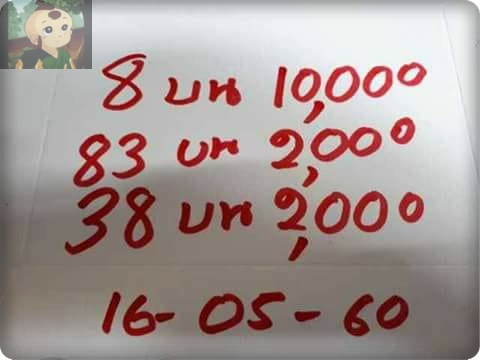 8 บน 10,000
83 บน 2,000
38 บน 2,000
16-05-60